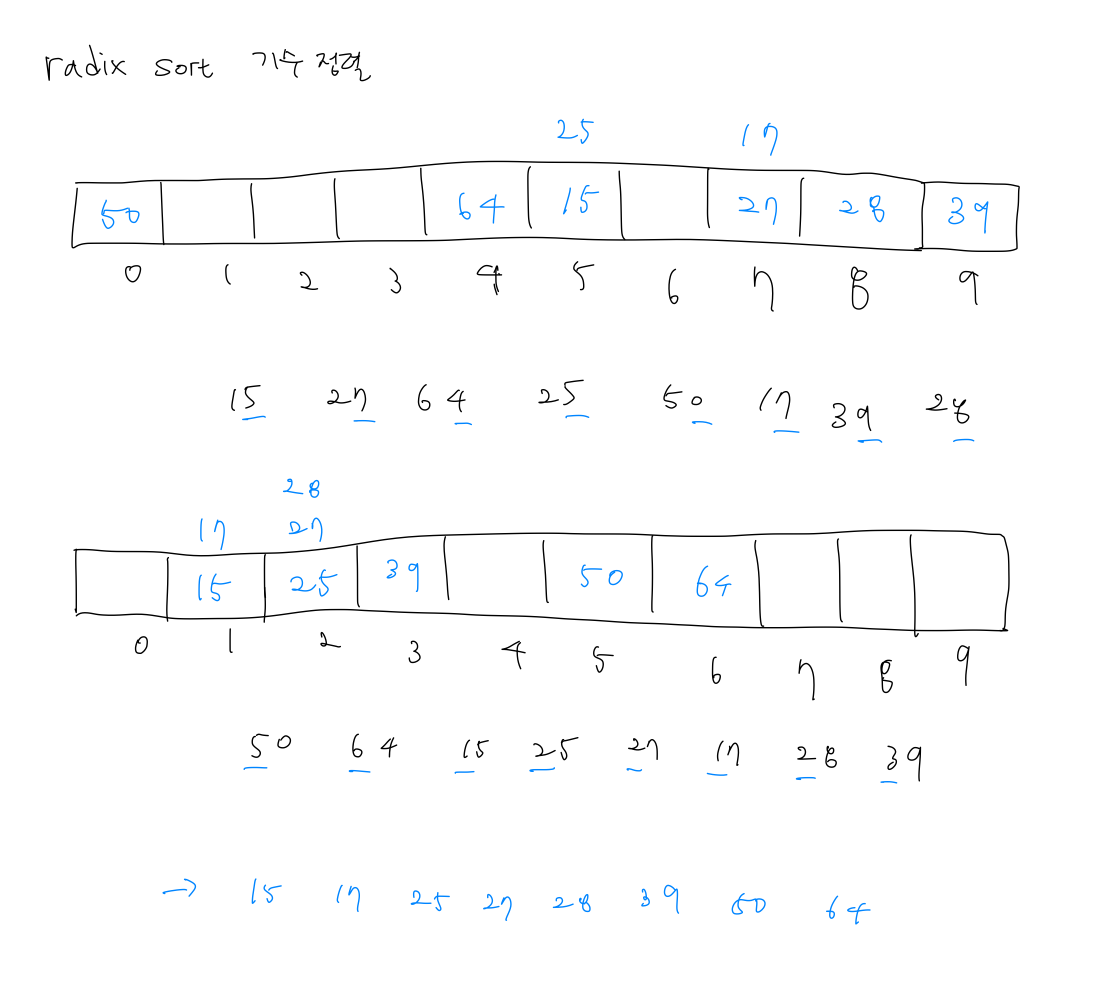 radix sort 기수 정렬
25 17
50 64 15 27 28 39
0 1 2 3 4 5 6 7 8 9
15 27 64 25 50 17 39 28
28
17 27
15 25 39 50 64
0 1 2 3 4 5 6 7 8 9
50 64 15 25 27 17 28 39
→ 15 17 25 27 28 39 50 64